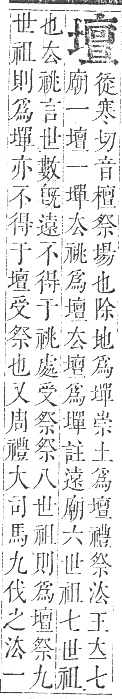 壇
從寒切音檀祭場也除地為墠崇土為壇禮祭法王立七
廟一壇一墠去祧為壇去壇為墠註遠廟六世祖七世祖
也去祧言世數旣遠不得于祧處受祭祭八世祖則為壇祭九
世祖則為墠亦不得于壇受祭也又周禮大司馬九伐之法一